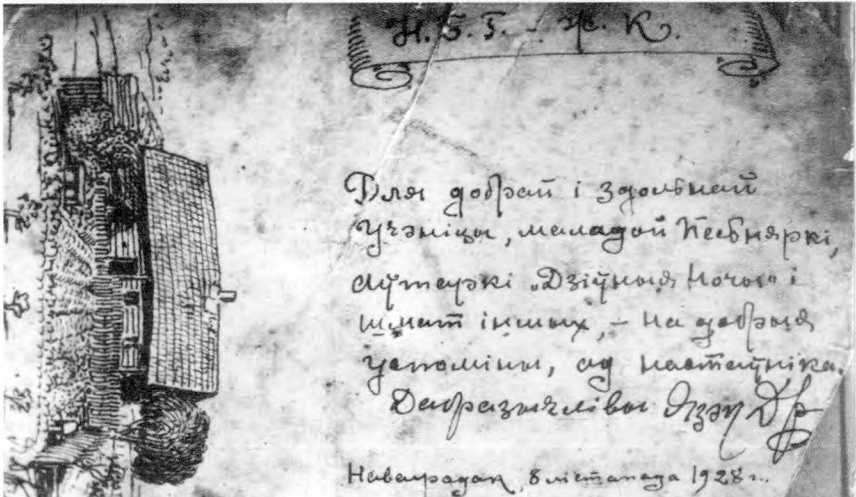 Н.Б.Г. - Ж. К.
Для добрай і здольнай
учэніцы, маладой Песняркі,
аўтаркі „Дзіўныя ночы“ і
шмат іншых, – на добрыя
успаміны, ад настаўніка.
Дабразычлівы Язэп Др
Наваградак, 8 лістапада 1928 г.